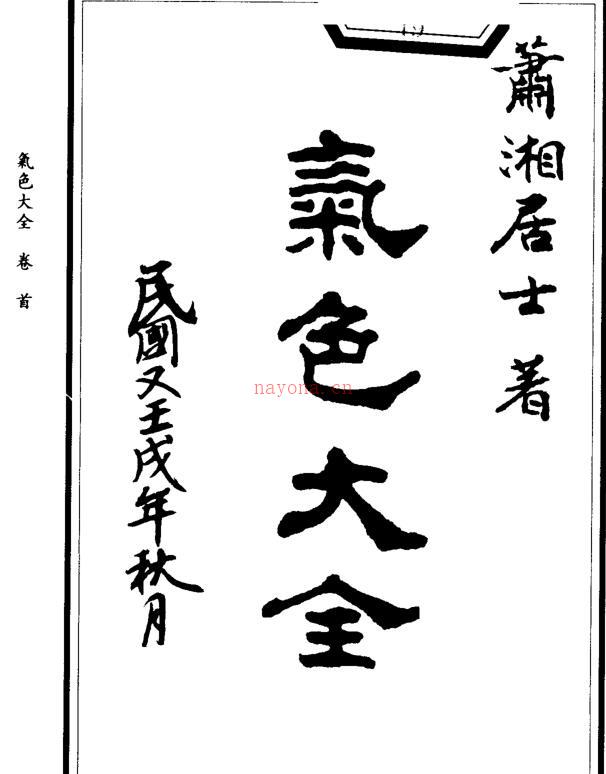 蕭湘居士著
氣色大全
民國又壬戌年秋月
氣色大全 卷首
nayona.cn